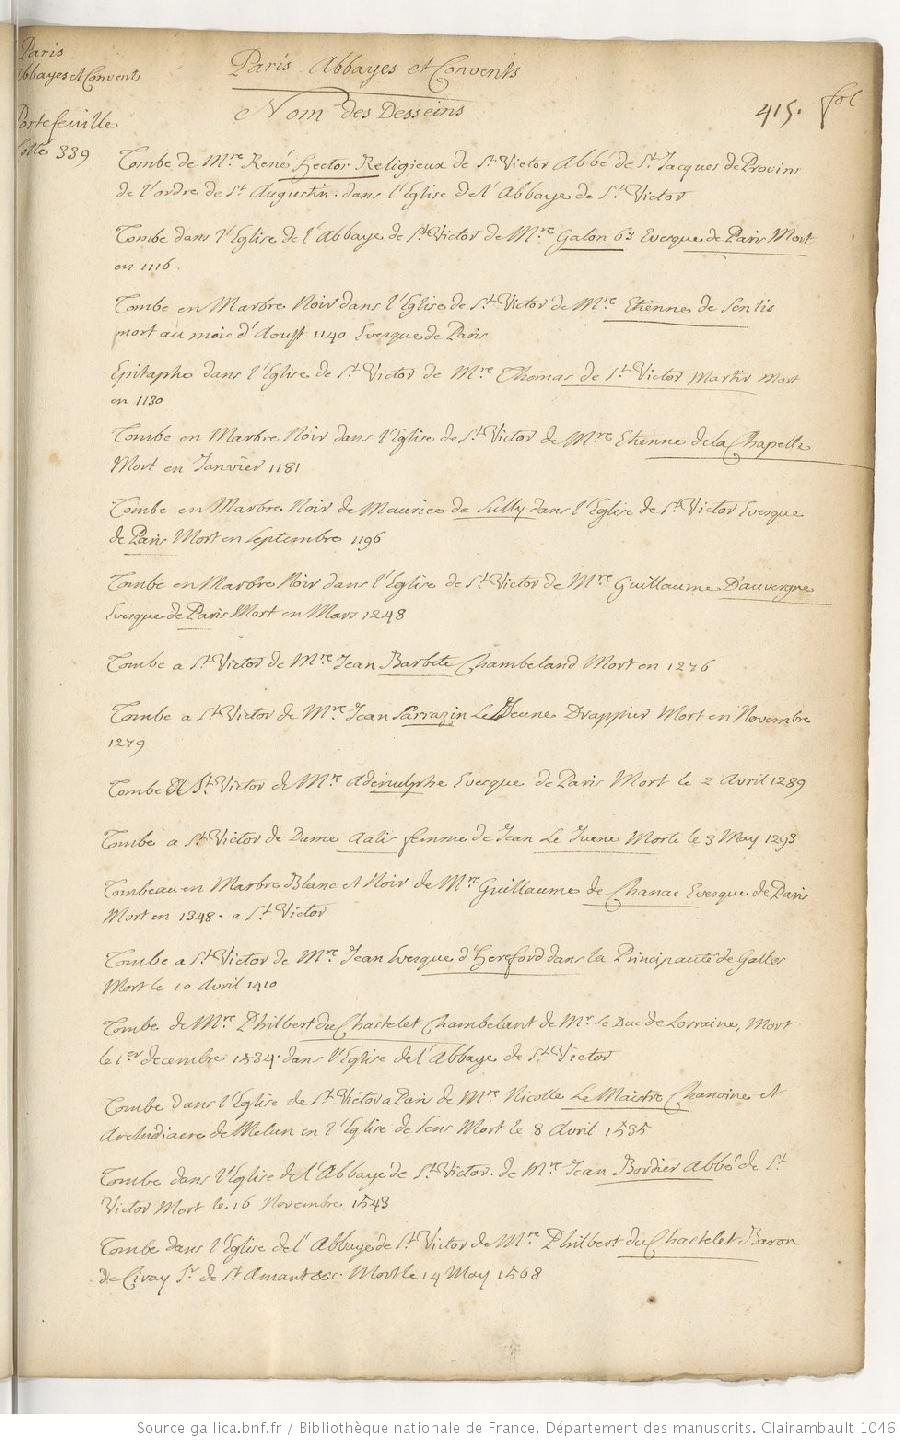 Paris
Abbayes et Convents
Portefeuille
Cotté 339
Paris Abbayes et Convents
Nom des Desseins
415. fol
Tombe de Mre René Hector Religieux de St Victor Abbé de St Jacques de Provins
de l'ordre de St Augustin. dans l'Eglise de l'Abbaye de St Victor
Tombe dans l'Eglise de l'Abbaye de St Victor de Mre Galon 63 Evesque de Paris Mort
en 1116.
Tombe en Marbre Noir dans l'Eglise de St Victor de Mre Etienne de Senlis
mort au mois d'Aoust 1140 Evesque de Paris
Epitaphe dans l'Eglise de St Victor de Mre Thomas de St Victor Martir Mort
en 1130
Tombe en Marbre Noir dans l'Eglise de St Victor de Mre Etienne de la Chapelle
Mort en Janvier 1181
Tombe en Marbre Noir de Maurice de Sully dans l'Eglise de St Victor Evesque
de Paris Mort en Septembre 1196
Tombe en Marbre Noir dans l'Eglise de St Victor de Mre Guillaume D'auvergne
Evesque de Paris Mort en Mars 1248
Tombe a St Victor de Mre Jean Barbete Chambeland Mort en 1276
Tombe a St Victor de Mre Jean Sarrazin Le Jeune Drappier Mort en Novembre
1279
Tombe a St Victor de Mre Adenulphe Evesque de Paris Mort le 2 Avril 1289
Tombe a St Victor de Dame Aalis femme de Jean Le Juene Morte le 3 May 1293
Tombeau en Marbre Blanc et Noir de Mre Guillaume de Chanac Evesque de Paris
Mort en 1348. a St Victor
Tombe a St Victor de Mre Jean Evesque d'Hereford dans la Principauté de Galles
Mort le 10 Avril 1410
Tombe de Mre Philbert du Chastelet Chambelant de Mr le Duc de Lorraine, Mort
le 1er decembre 1534. dans l'Eglise de l'Abbaye de St Victor
Tombe dans l'Eglise de St Victor a Paris de Mre Nicolle Le Maistre Chanoine et
Archidiacre de Melun en l'Eglise de Sens Mort le 8 Avril 1535
Tombe dans l'Eglise de l'Abbaye de St Victor. de Mre Jean Bordier Abbé de St
Victor Mort le. 16 Novembre 1543
Tombe dans l'Eglise de l'Abbaye de St Victor de Mre Philbert du Chastelet Baron
de Ciray Sr de St Amant &c. Mort le 14 May 1568
Source gallica.bnf.fr / Bibliothèque nationale de France. Département des manuscrits. Clairambault 1046